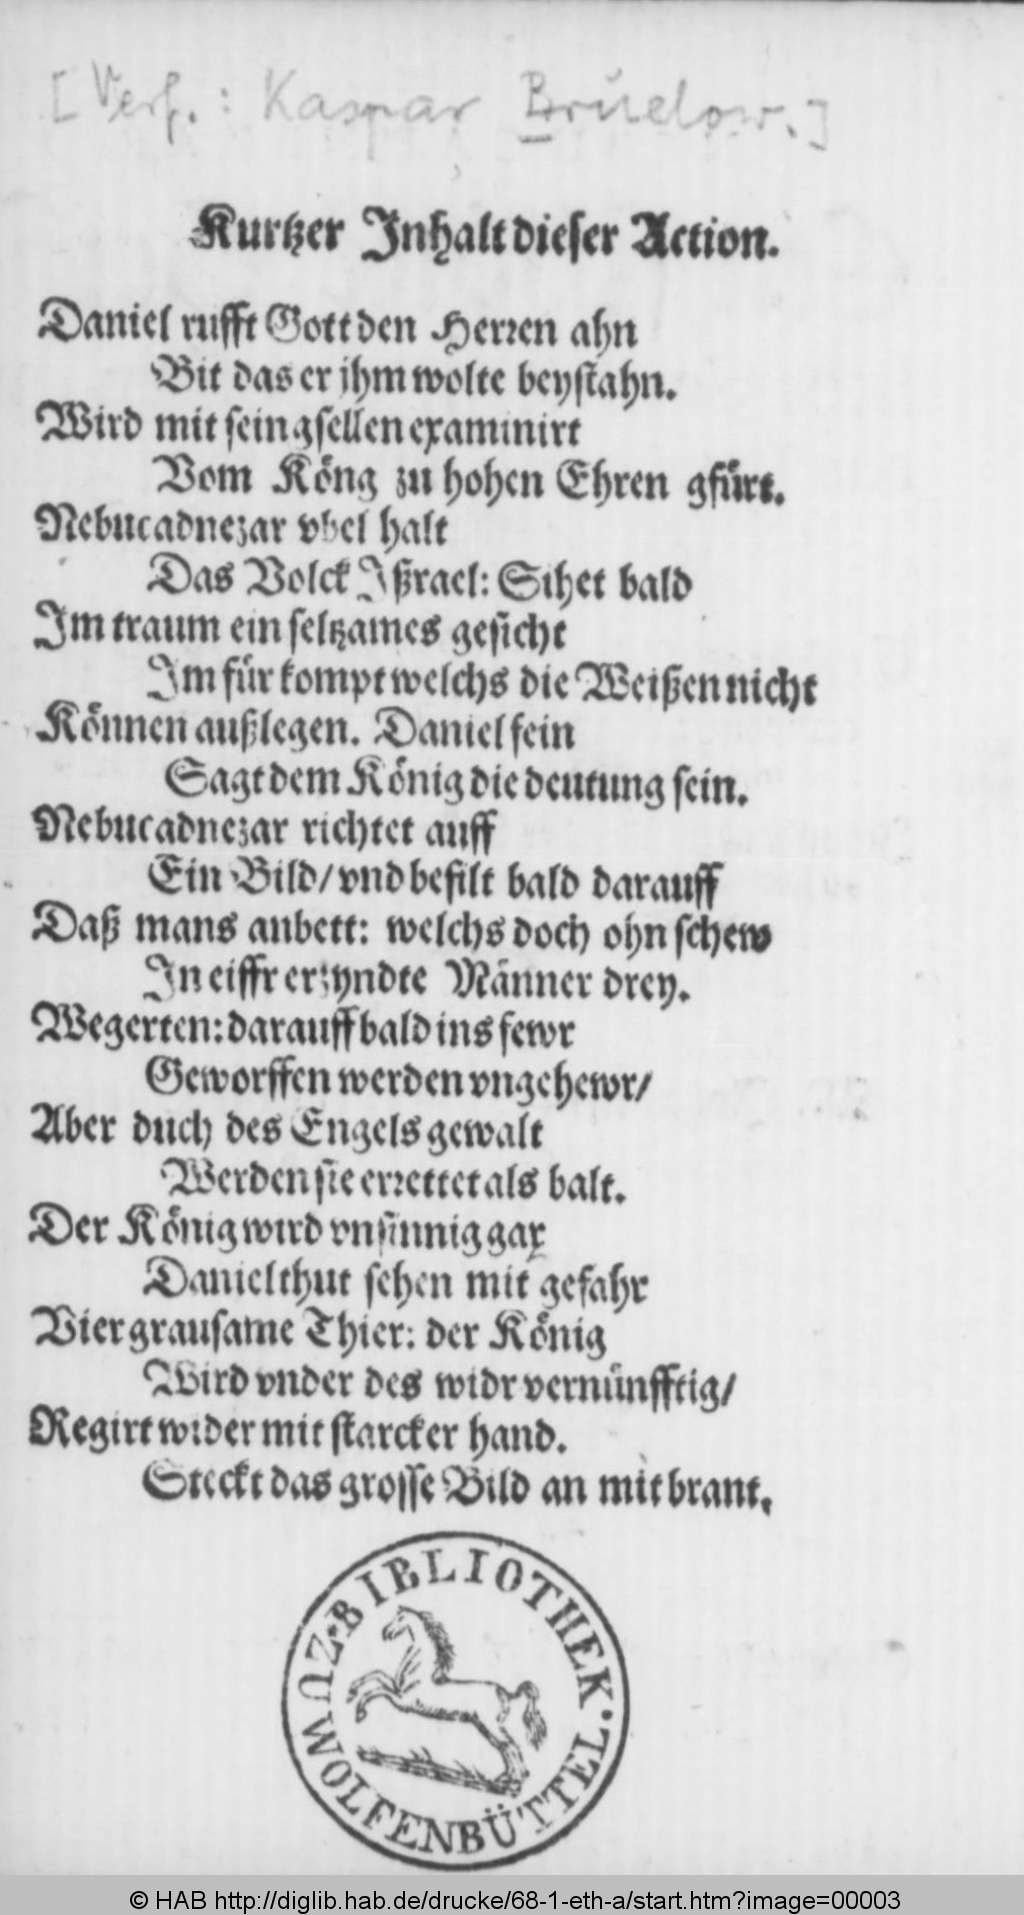 [Verf.: Kaspar Brülow.]
Kurtzer Inhalt dieser Action.
Daniel rufft Gott den Herren ahn
Bit das er jhm wolte beystahn.
Wird mit sein gsellen examinirt
Vom Köng zu hohen Ehren gfürt.
Nebucadnezar vbel halt
Das Volck Jßrael: Sihet bald
Im traum ein seltzames gesicht
Im für kompt welchs die Weißen nicht
Können außlegen. Daniel fein
Sagt dem König die deutung sein.
Nebucadnezar richtet auff
Ein Bild/ vnd befilt bald darauff
Daß mans anbett: welchs doch ohn schew
In eiffr erzyndte Männer drey.
Wegerten: darauff bald ins fewr
Geworffen werden vngehewr/
Aber duch des Engels gewalt
Werden sie errettet als balt.
Der König wird vnsinnig gar
Daniel thut sehen mit gefahr
Vier grausame Thier: der König
Wird vnder des widr vernünfftig/
Regirt wider mit starcker hand.
Steckt das grosse Bild an mit brant.
BIBLIOTHEK.
ZU WOLFENBÜTTEL
© HAB http://diglib.hab.de/drucke/68-1-eth-a/start.htm?image=00003